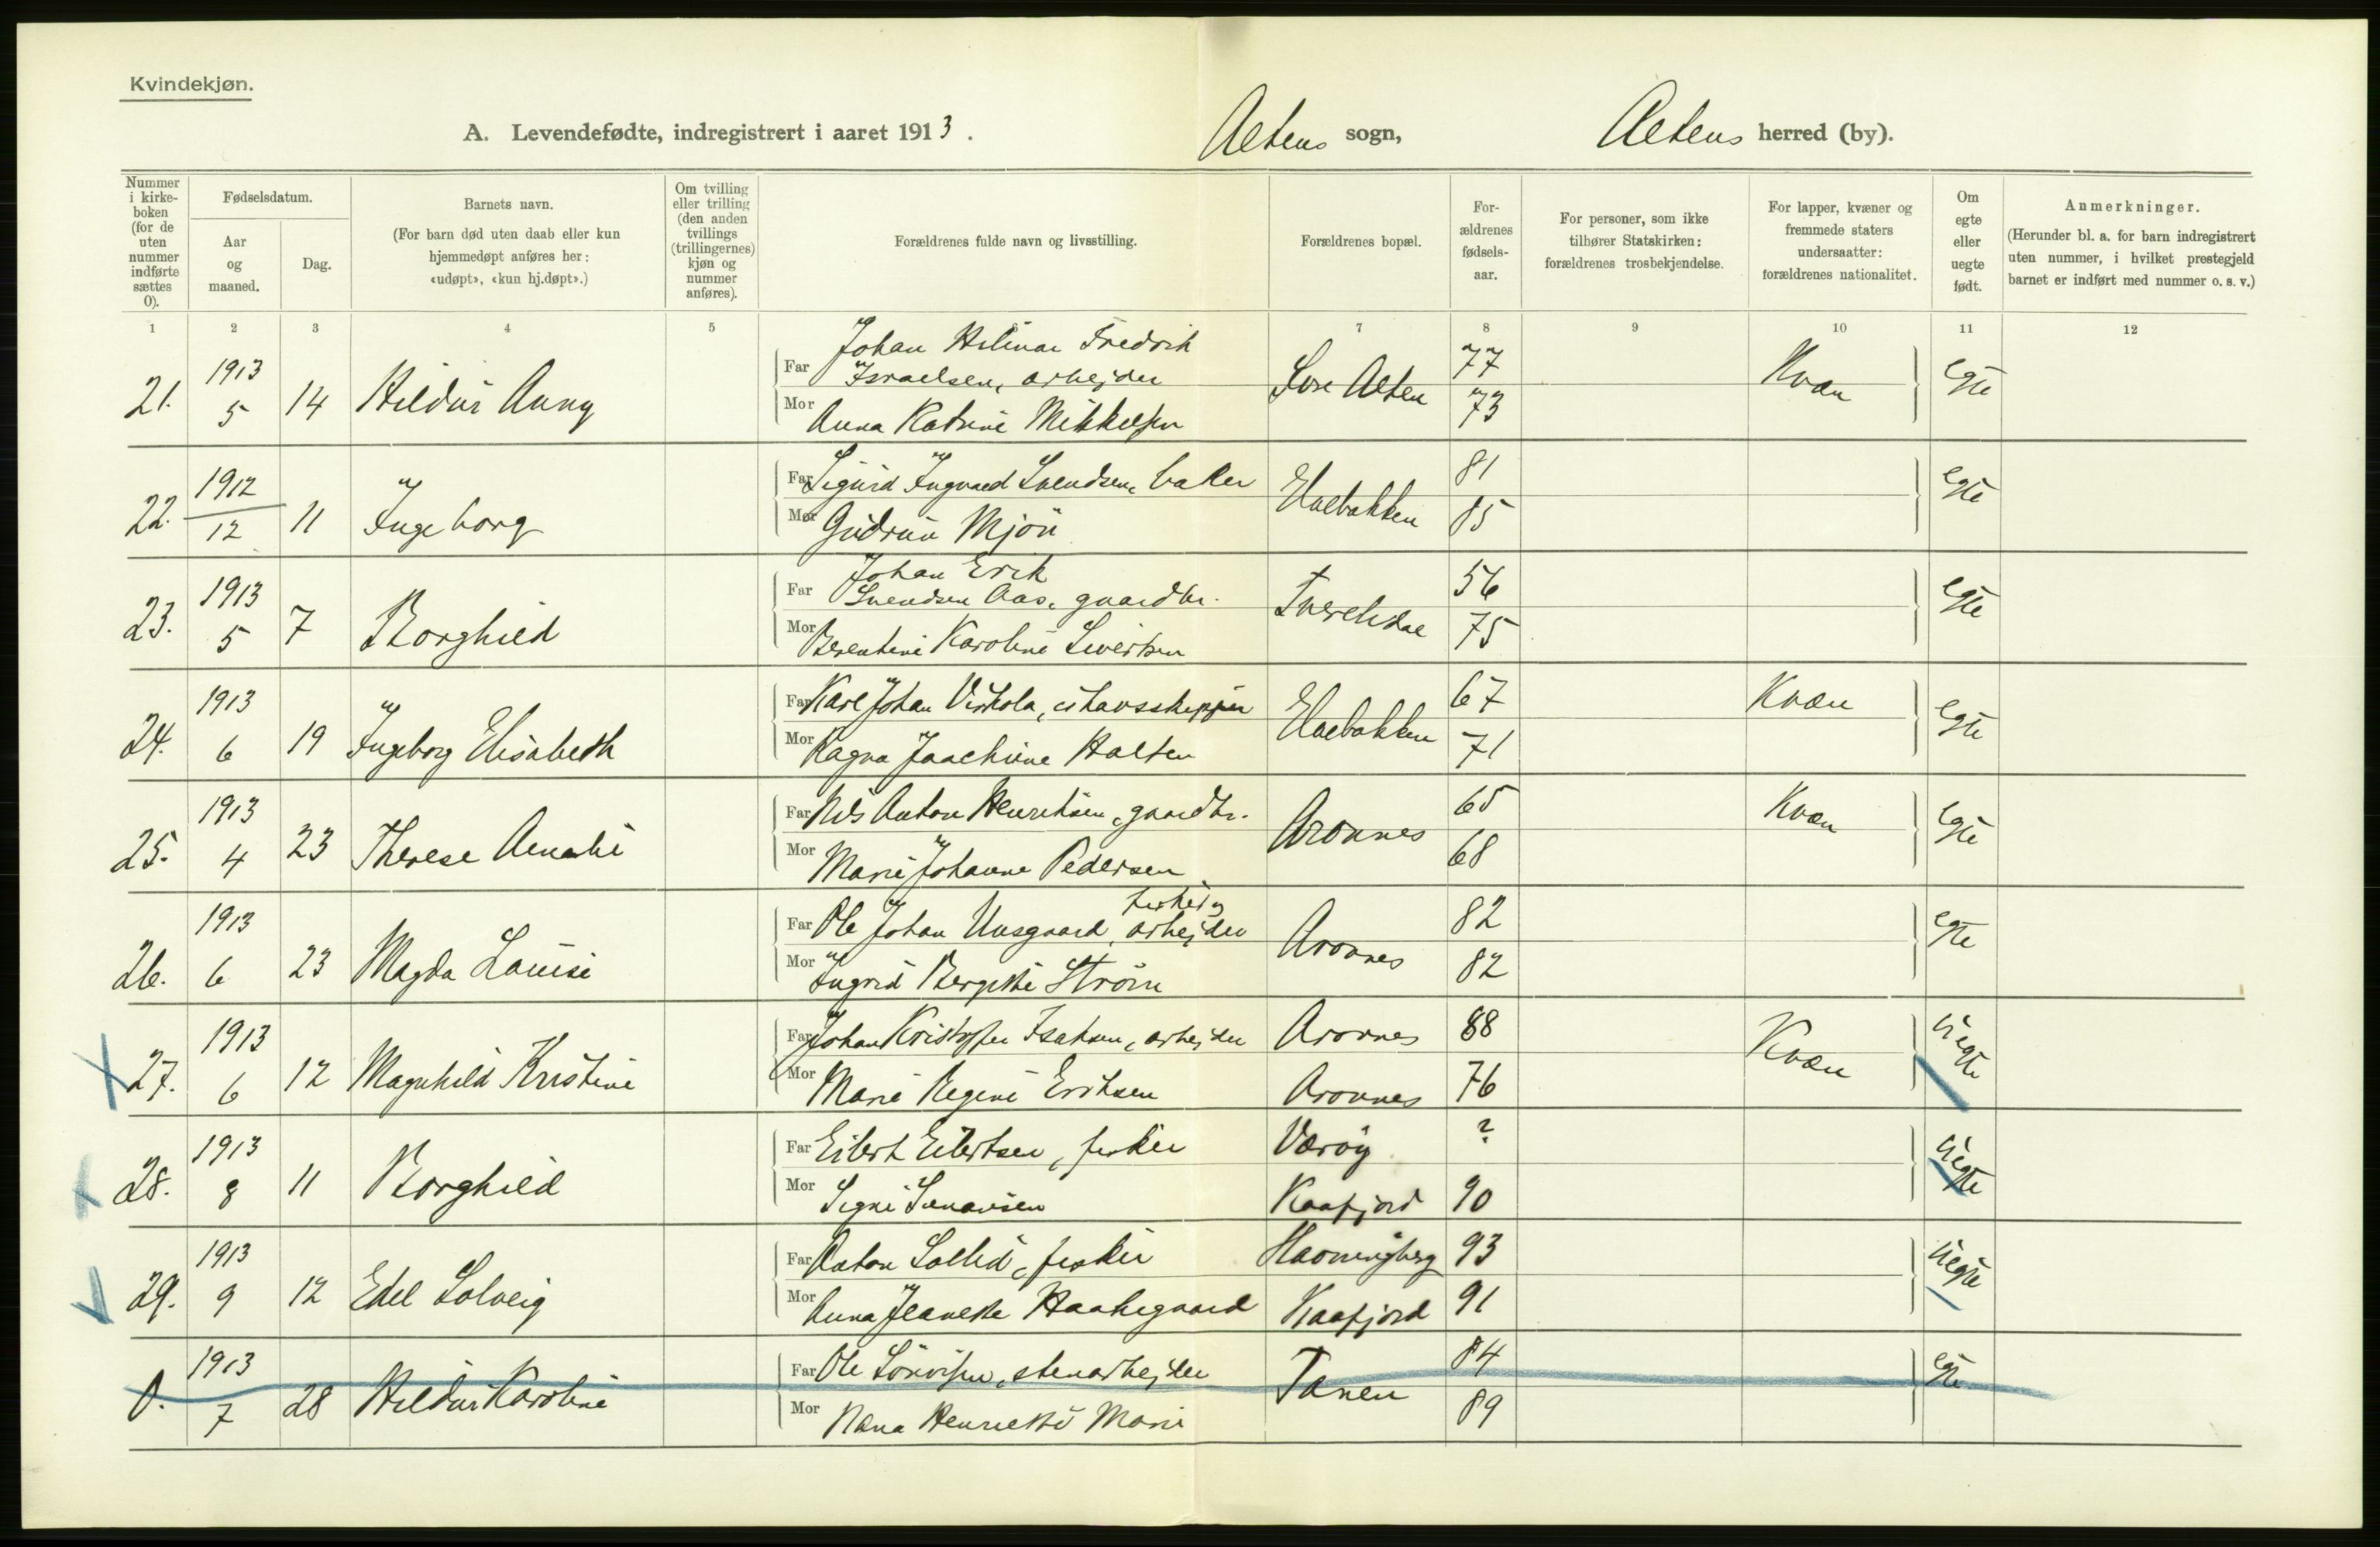 Kvindekjøn.
A. Levendefødte, indregistrert i aaret 1913. Altens sogn, Altens herred (by).
Nummer i kirke-boken (for de uten nummer indførte sættes 0).
Fødselsdatum.
Aar og maaned.
Dag.
Barnets navn.
(For barn død uten daab eller kun hjemmedøpt anføres her: «udøpt», «kun hj.døpt».)
Om tvilling eller trilling (den anden tvillings (trillingernes) kjøn og nummer anføres).
Forældrenes fulde navn og livsstilling.
Forældrenes bopæl.
For-ældrenes fødsels-aar.
For personer, som ikke tilhører Statskirken: forældrenes trosbekjendelse.
For lapper, kvæner og fremmede staters undersaatter: forældrenes nationalitet.
Om egte eller uegte født.
Anmerkninger.
(Herunder bl. a. for barn indregistrert uten nummer, i hvilket prestegjeld barnet er indført med nummer o. s. v.)
1 2 3 4 5 7 8 9 10 11 12
21. 1913 5 14 Hildur Anny
Far Johan Hilmar Fredrik Israelsen, arbejder
Mor Anna Katrine Mikkelsen
Alten 77 73 Kvæn egte
22. 1912 12 11 Ingeborg
Far Sigurd Ingvard Svendsen, baker
Mor Gudrun Mjøn
Elvebakken 81 85 egte
23. 1913 5 7 Borghild
Far Johan Erik Svendsen Aas, gaardbr.
Mor Berentine Karoline Sivertsen
Tverelvdal 56 75 egte
24. 1913 6 19 Ingeborg Elisabeth
Far Karl Johan Viskola,
Mor Ragna Joachime Halten
Elvebakken 67 71 Kvæn egte
25. 1913 4 23 Therese Amalie
Far Nils Anton Henriksen, gaardbr.
Mor Marie Johanne Pedersen
Aronnes 65 68 Kvæn egte
26. 1913 6 23 Magda Louise
Far Ole Johan Unsgaard, arbejder
Mor Ingrid Bergitte Strøm
Aronnes 82 82 egte
27. 1913 6 12 Magnhild Kristine
Far Johan Kristoffer Isaksen, arbejder Aronnes 88
Mor Marie Regine Eriksen Aronnes 76
Kvæn uegte
28. 1913 8 11 Borghild
Far Eilert Eilertsen, fisker Værøy ?
Mor Signe Kaafjord 90
uegte
29. 1913 9 12 Edel Solveig
Far Anton Sollid, fisker Havningberg 93
Mor Anna Jeanette Haakegaard Kaafjord 91
uegte
0. 1913 7 28 Hildur Karoline
Far Ole stenarbejder
Mor Nana Henriette Marie
Tanen 84 89 egte